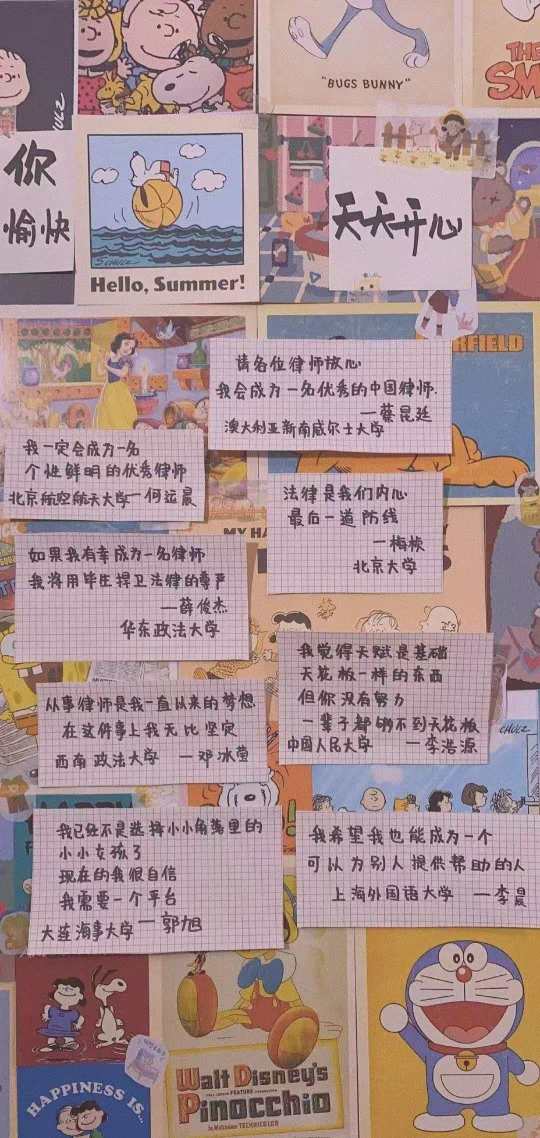 SCHULZ
"BUGS BUNNY"
THE
SM
你
愉快
SCHULZ
Hello, Summer!
天天开心
RFIELD
请各位律师放心
我会成为一名优秀的中国律师.
—蔡昆廷
澳大利亚新南威尔士大学
我一定会成为一名
个性鲜明的优秀律师
北京航空航天大学—何运晨
法律是我们内心
最后一道防线
—梅桢
北京大学
MY HA
如果我有幸成为一名律师
我将用毕生捍卫法律的尊严
—薛俊杰
华东政法大学
我觉得天赋是基础
天花板一样的东西
但你没有努力
一辈子都够不到天花板
中国人民大学 —李浩源
从事律师是我一直以来的梦想
在这件事上我无比坚定
西南政法大学 —邓冰莹
CHULZ
我已经不是选择小小角落里的
小小女孩了
现在的我很自信
我需要一个平台
大连海事大学—郭旭
我希望我也能成为一个
可以为别人提供帮助的人
上海外国语大学 —李晨
Walt Disney's
Pinocchio
In Multiplane TECHNICOLOR
HAPPINESS IS...